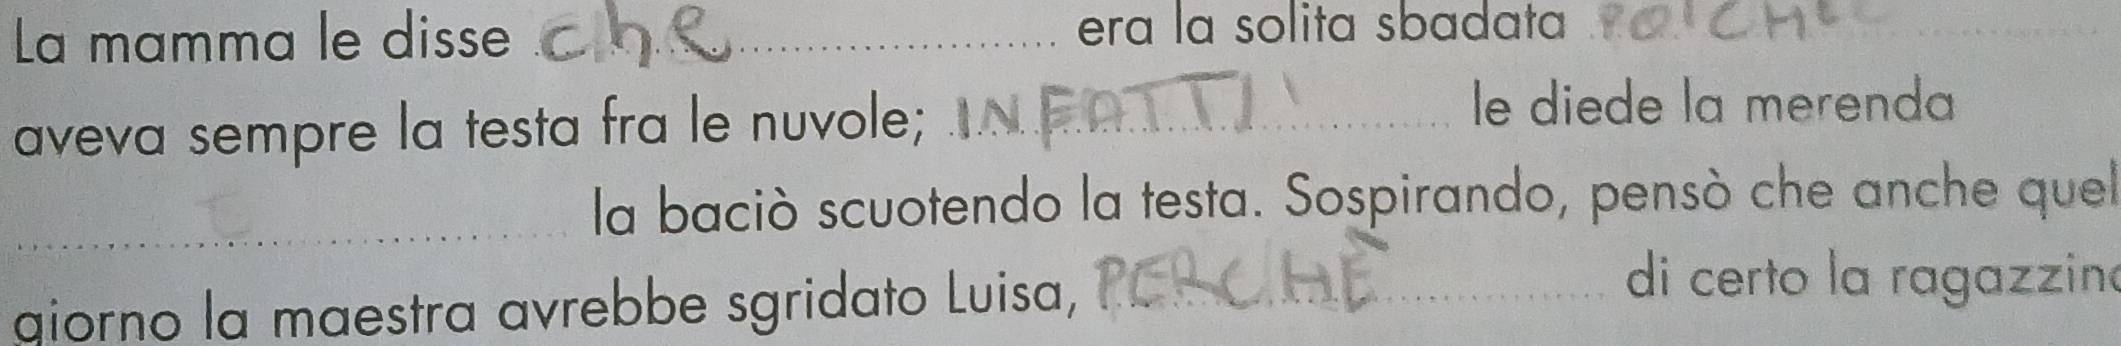 La mamma le disse che era la solita sbadata POICHE
aveva sempre la testa fra le nuvole; INFATTI le diede la merenda
E la baciò scuotendo la testa. Sospirando, pensò che anche quel
giorno la maestra avrebbe sgridato Luisa, PERCHÈ di certo la ragazzina